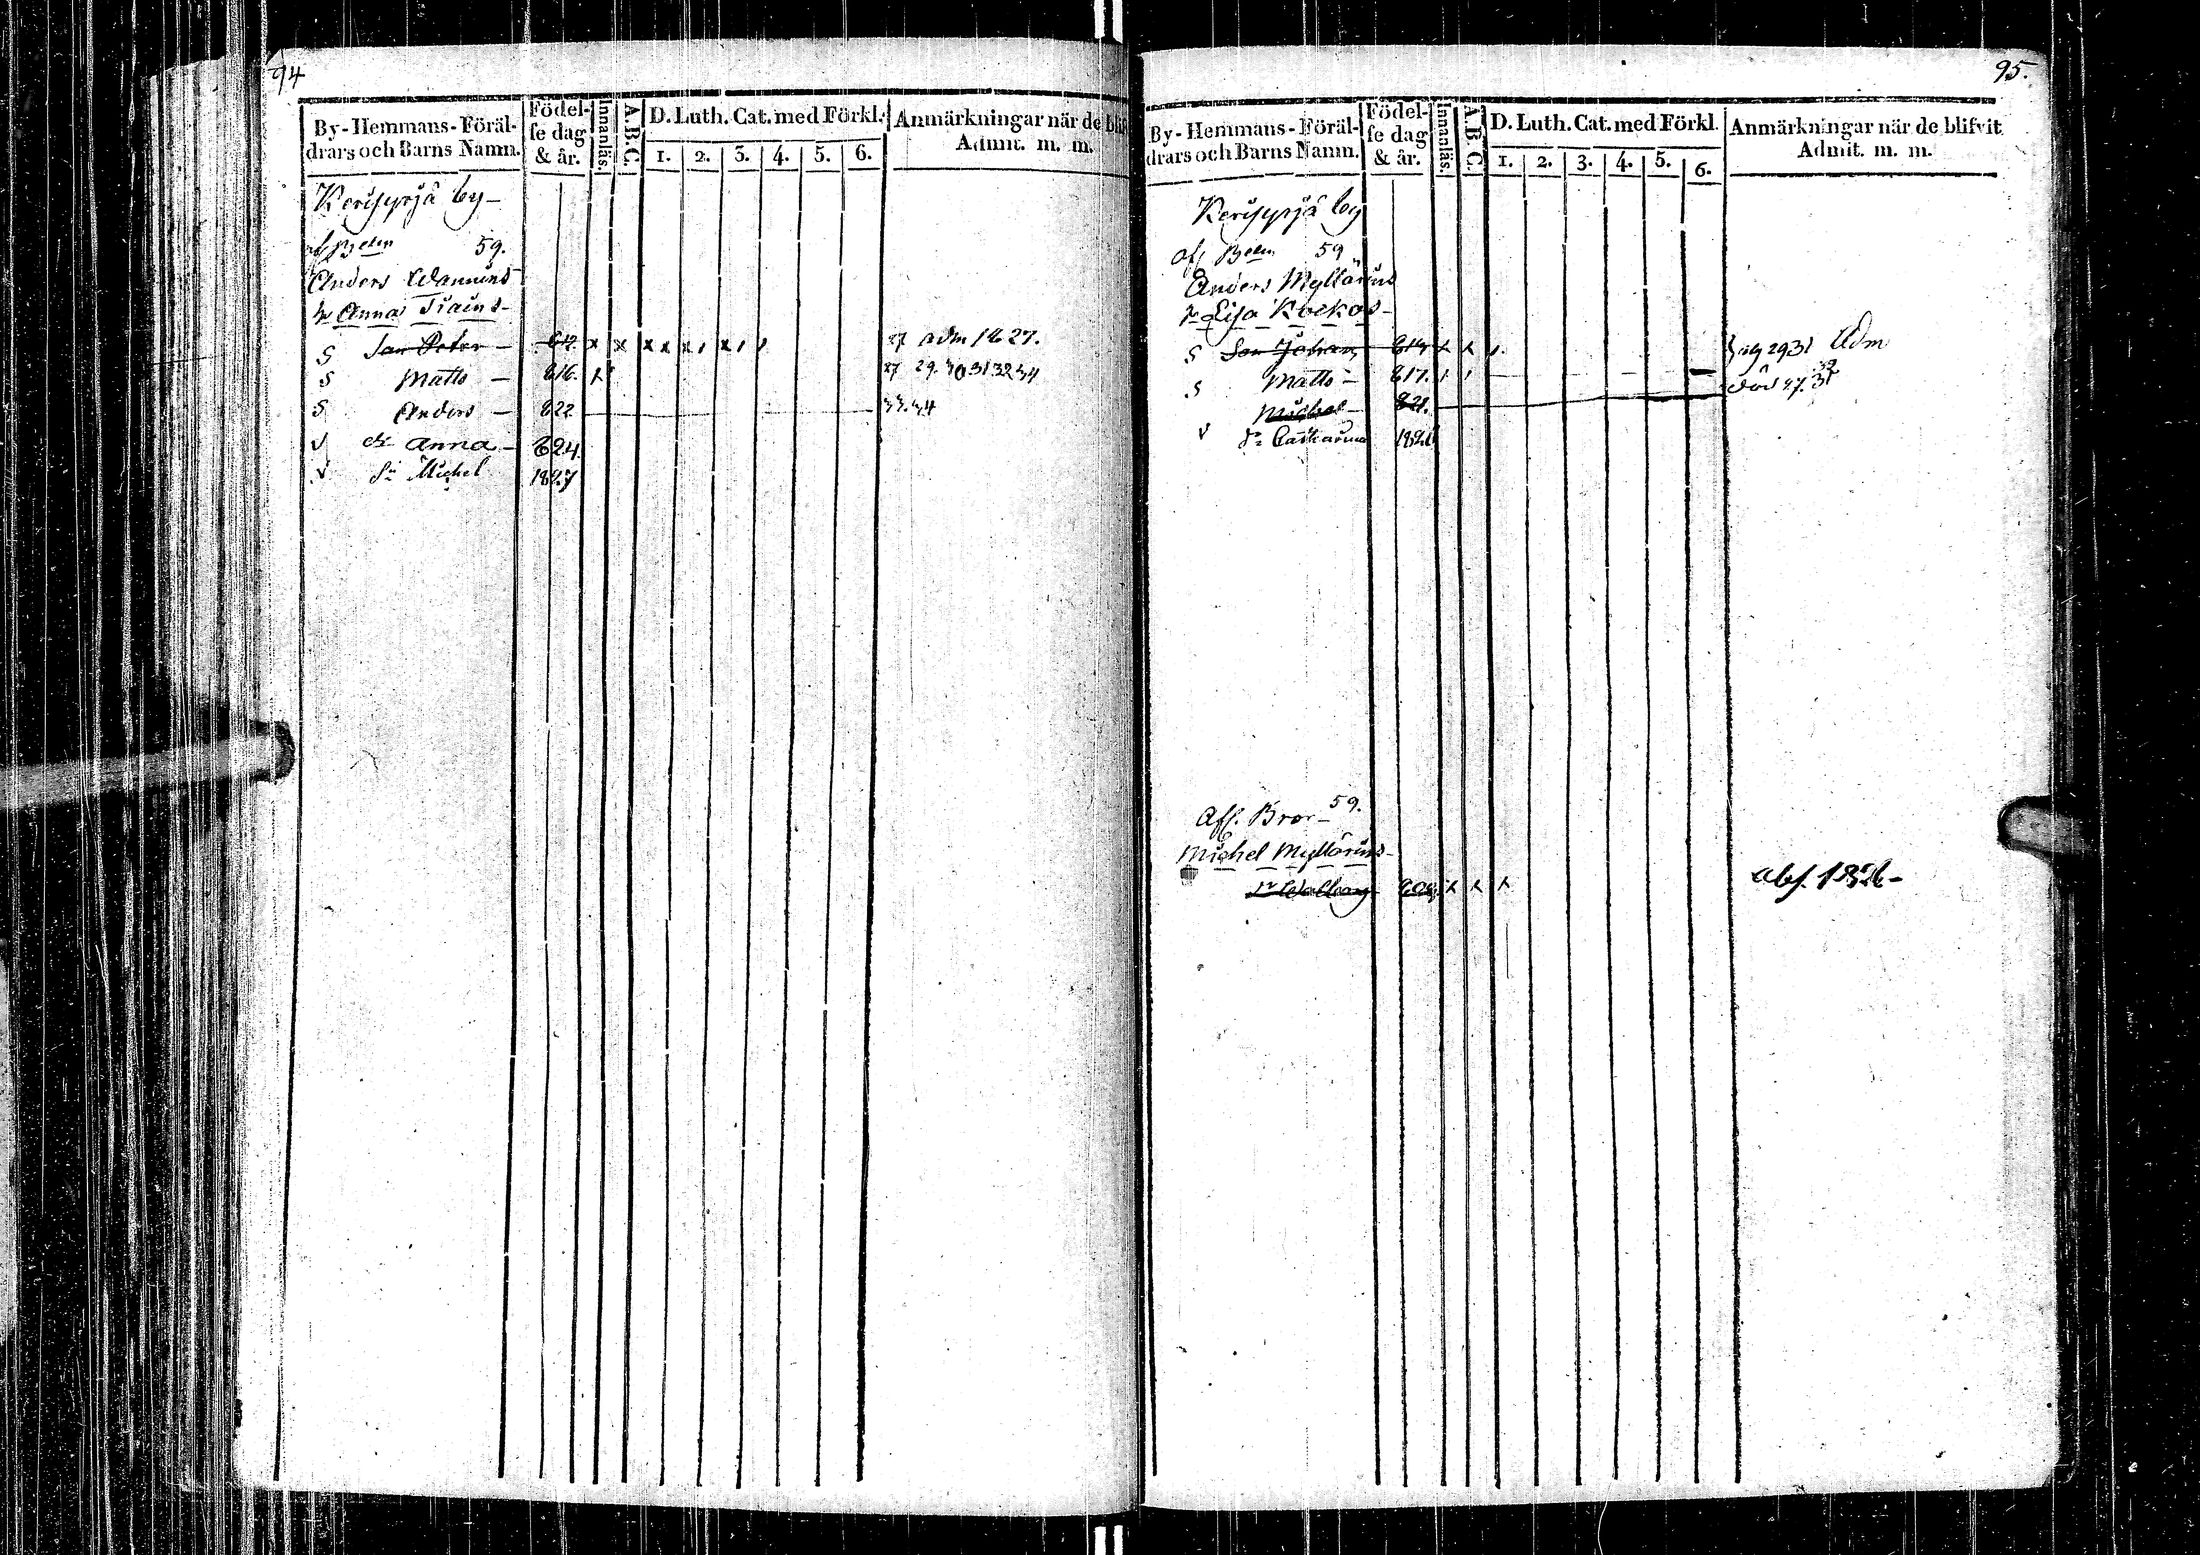 94
By-Hemmans-Föräl-
drars och Barns Namn.
Födel-
se dag
& år.
Innanläs.
A.B.C.
D. Luth. Cat. med Förkl.
1. 2. 3. 4. 5. 6.
Anmärkningar när de blif
Admit. m. m.
by
59.
Anders
h Anna
S Son Peter 812 x x x x x x 27 adm 1827.
S Matts 816. x 27 29. 30 31 32 34
S Anders 822 33. 34
v dr Anna 824
v Sn Michel 1827
95.
By-Hemmans-Föräl-
drars och Barns Namn.
Födel-
se dag
& år.
Innanläs.
A.B.C.
D. Luth. Cat. med Förkl.
1. 2. 3. 4. 5. 6.
Anmärkningar när de blifvit
Admit. m. m.
by
59
Anders Myllärius
h Lisa Kockos
S Son Johan 814 x x 2931 Adm
S Matts 817. död
Michel 821.
v Catharina
Afs. Bror 59.
Michel Myllärius
x x x abs.